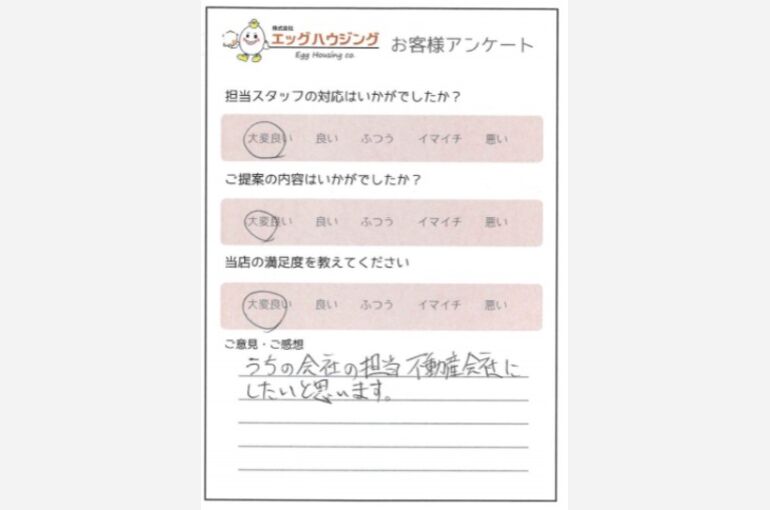 株式会社
エッグハウジング
Egg Housing co.
お客様アンケート
担当スタッフの対応はいかがでしたか？
大変良い 良い ふつう イマイチ 悪い
ご提案の内容はいかがでしたか？
大変良い 良い ふつう イマイチ 悪い
当店の満足度を教えてください
大変良い 良い ふつう イマイチ 悪い
ご意見・ご感想
うちの会社の担当不動産会社に
したいと思います。